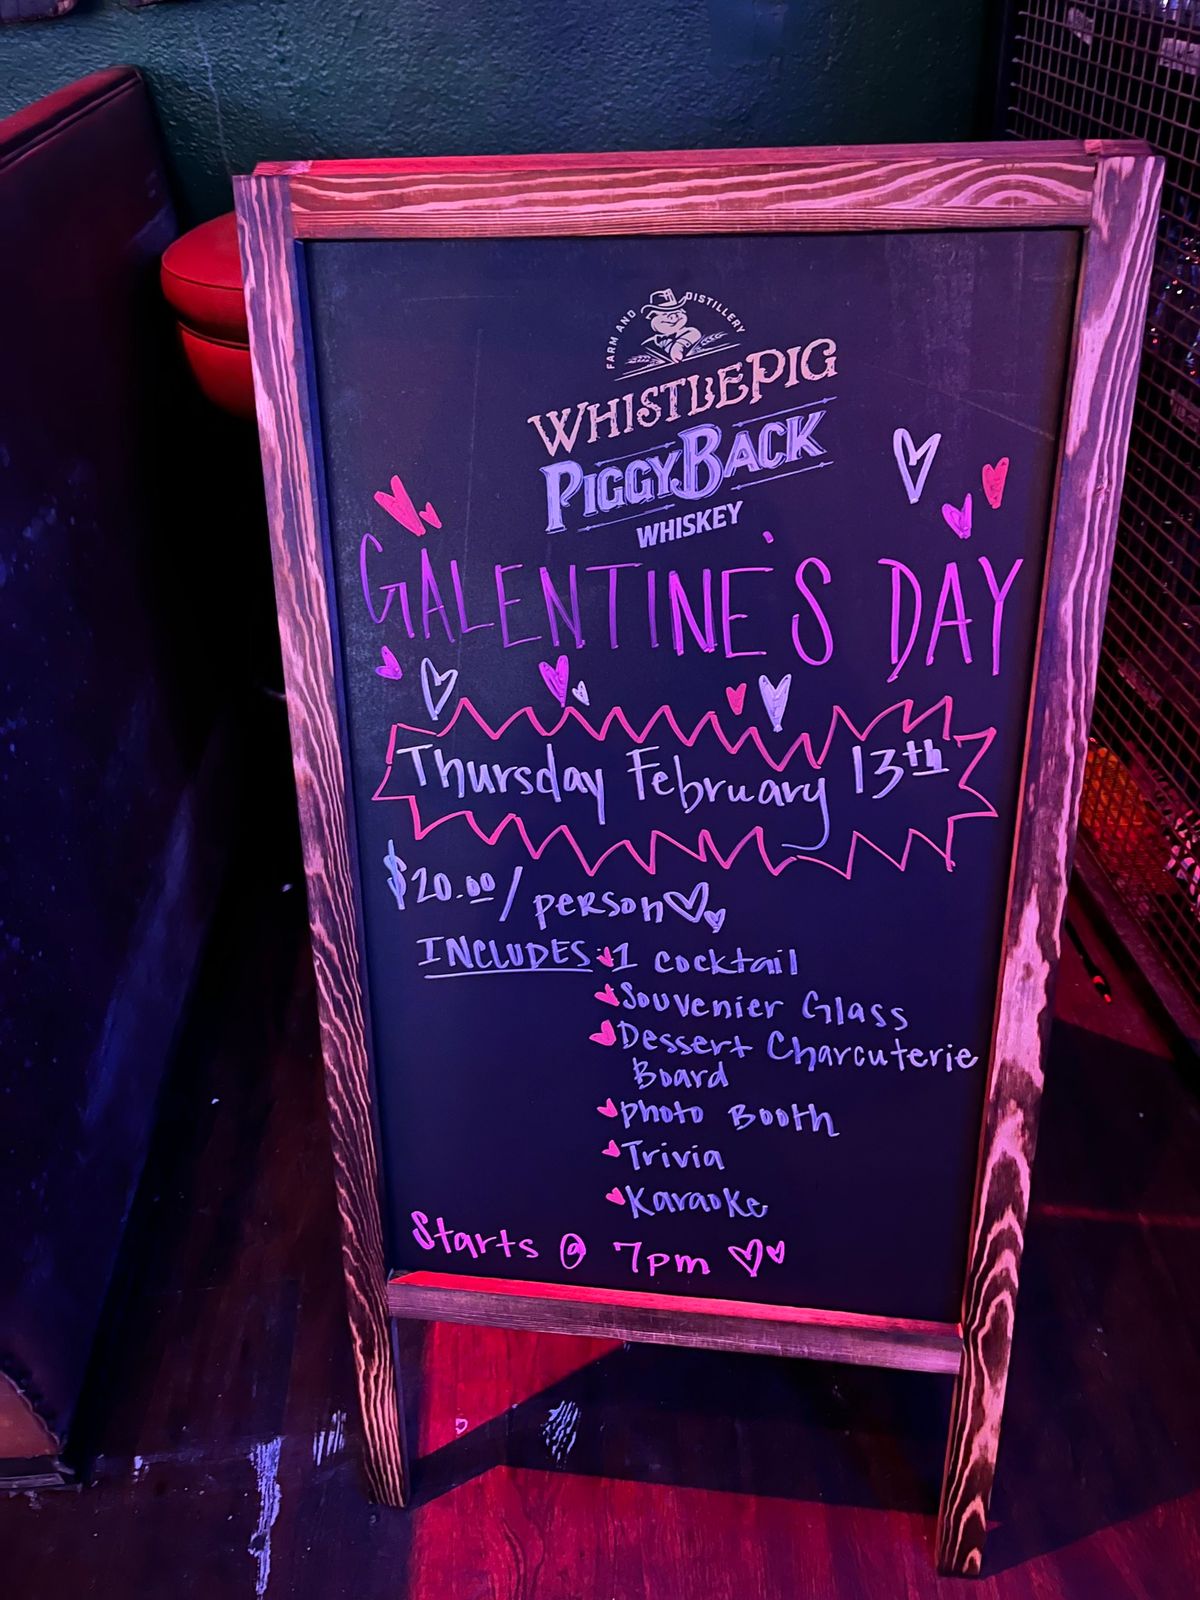 FARM AND DISTILLERY
WHISTLEPIG
PIGGYBACK
WHISKEY
GALENTINE'S DAY
Thursday February 13th
$20.00/person
INCLUDES: 1 cocktail
Souvenier Glass
Dessert Charcuterie
Board
Photo Booth
Trivia
Karaoke
Starts @ 7pm